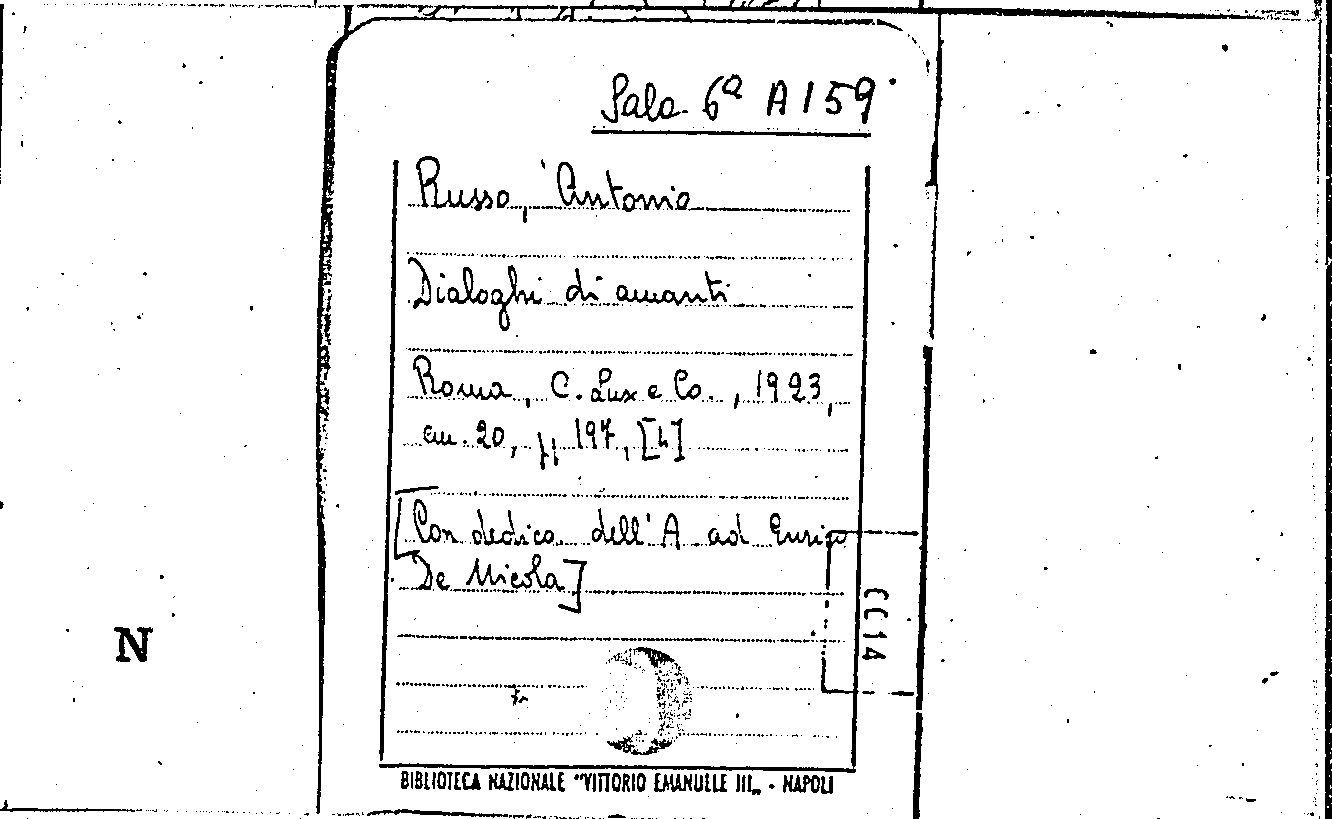 Sala 6ª A 159
Russo, Antonio
Dialoghi di amanti
Roma, C. Lux e Co., 1923,
cm. 20, pp 197, [4]
[Con dedica dell'A ad Enrico
De Nicola]
CC14
N
BIBLIOTECA NAZIONALE "VITTORIO EMANUELE III„ - NAPOLI